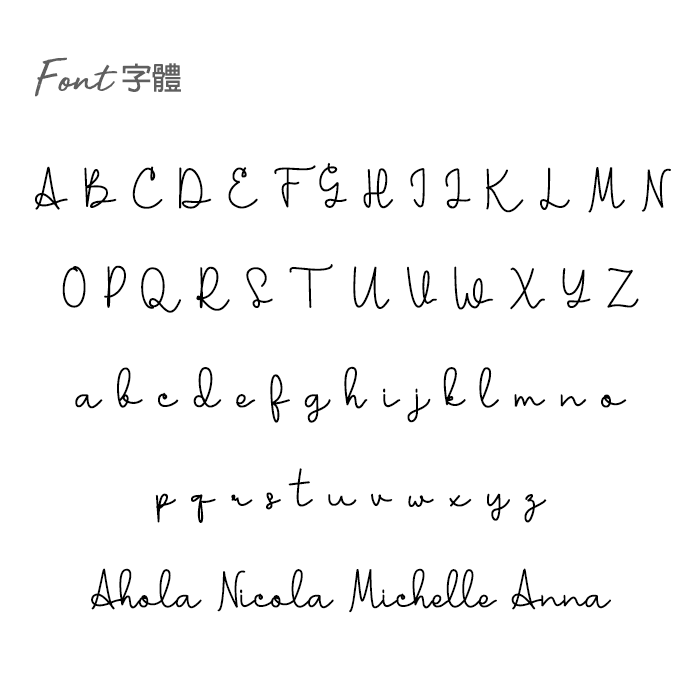 Font 字體
A B C D E F G H I J K L M N
O P Q R S T U V W X Y Z
a b c d e f g h i j k l m n o
p q r s t u v w x y z
Ahola Nicola Michelle Anna